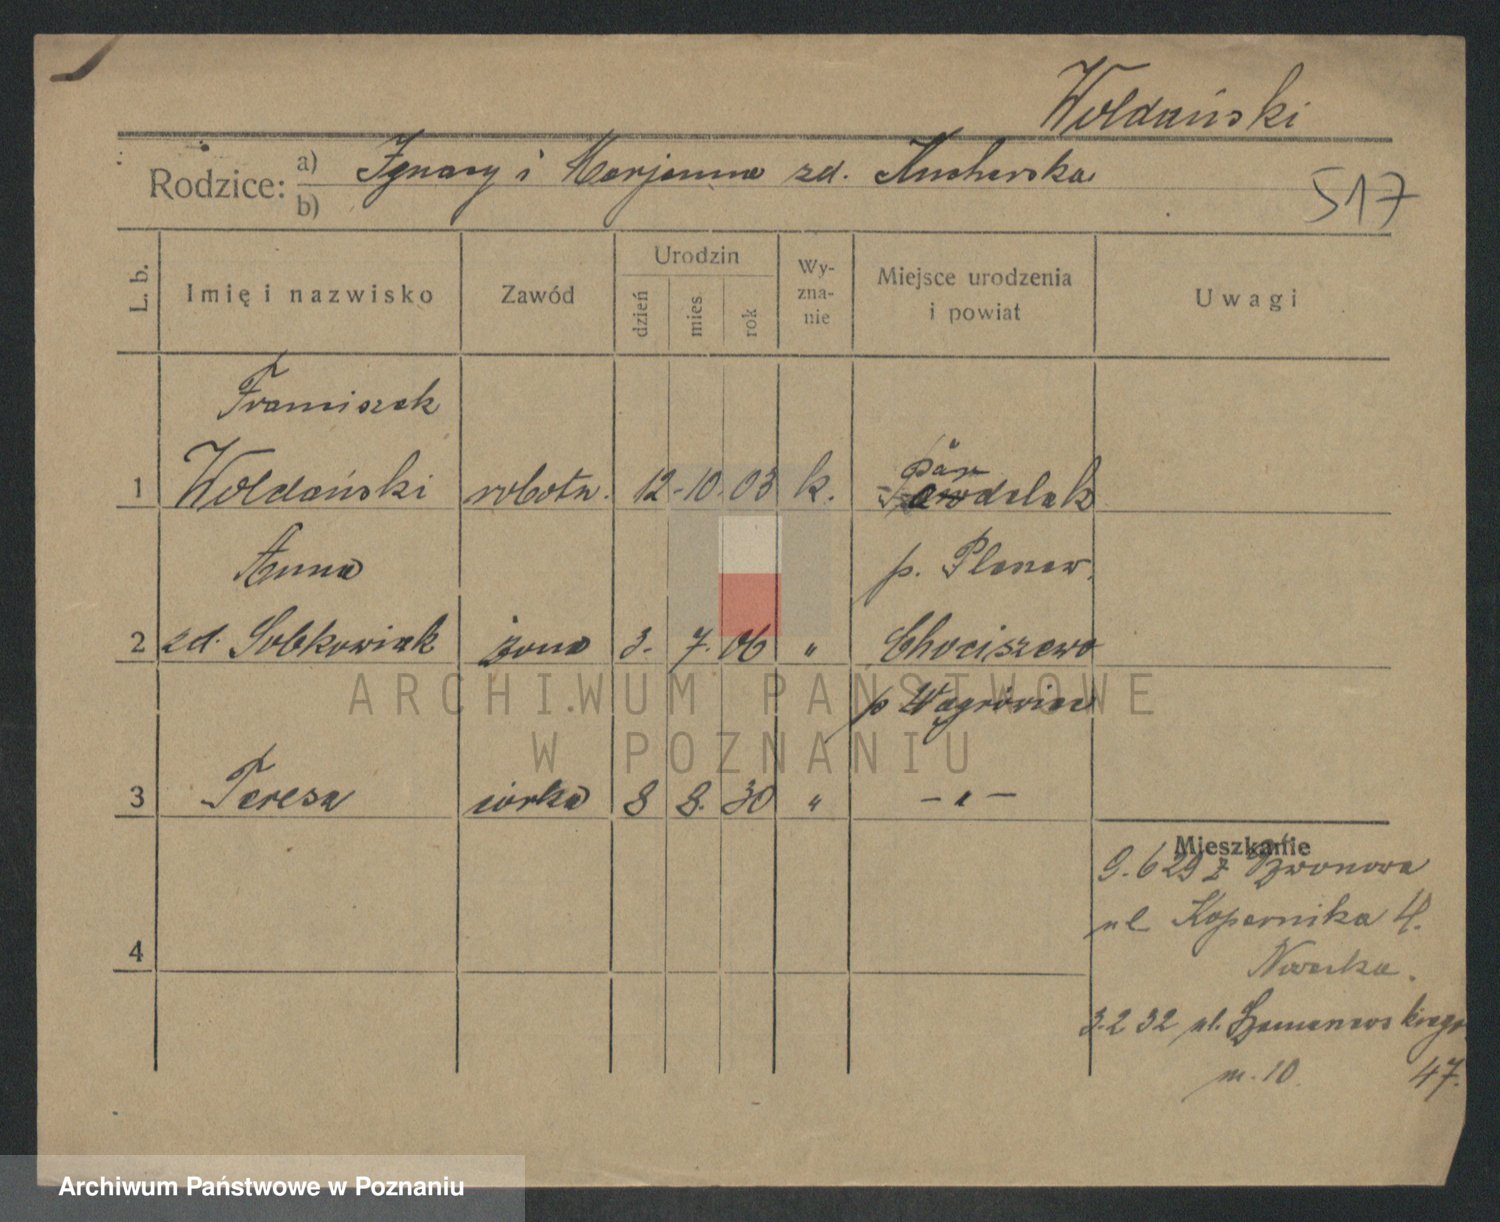 Woldański
Rodzice: a) Ignacy i Marjanna zd. Kucharska
b)
517
L. b.
Imię i nazwisko
Zawód
Urodzin
dzień
mies.
rok
Wy-
zna-
nie
Miejsce urodzenia
i powiat
Uwagi
Franciszek
1 Woldański robotn. 12-10. 03 k.
Anna
p. Pleszew.
2 zd. Sobkowiak żona 3. 7. 06 " Chociszewo
p Wągrówiec
3 Teresa córka 8 8. 30 " – " –
4
Mieszkanie
9. 6 29 z Dzwonowa
ul. Kopernika 4.
3. 2 32 ul.
m. 10. 47.
ARCHIWUM PAŃSTWOWE
W POZNANIU
Archiwum Państwowe w Poznaniu